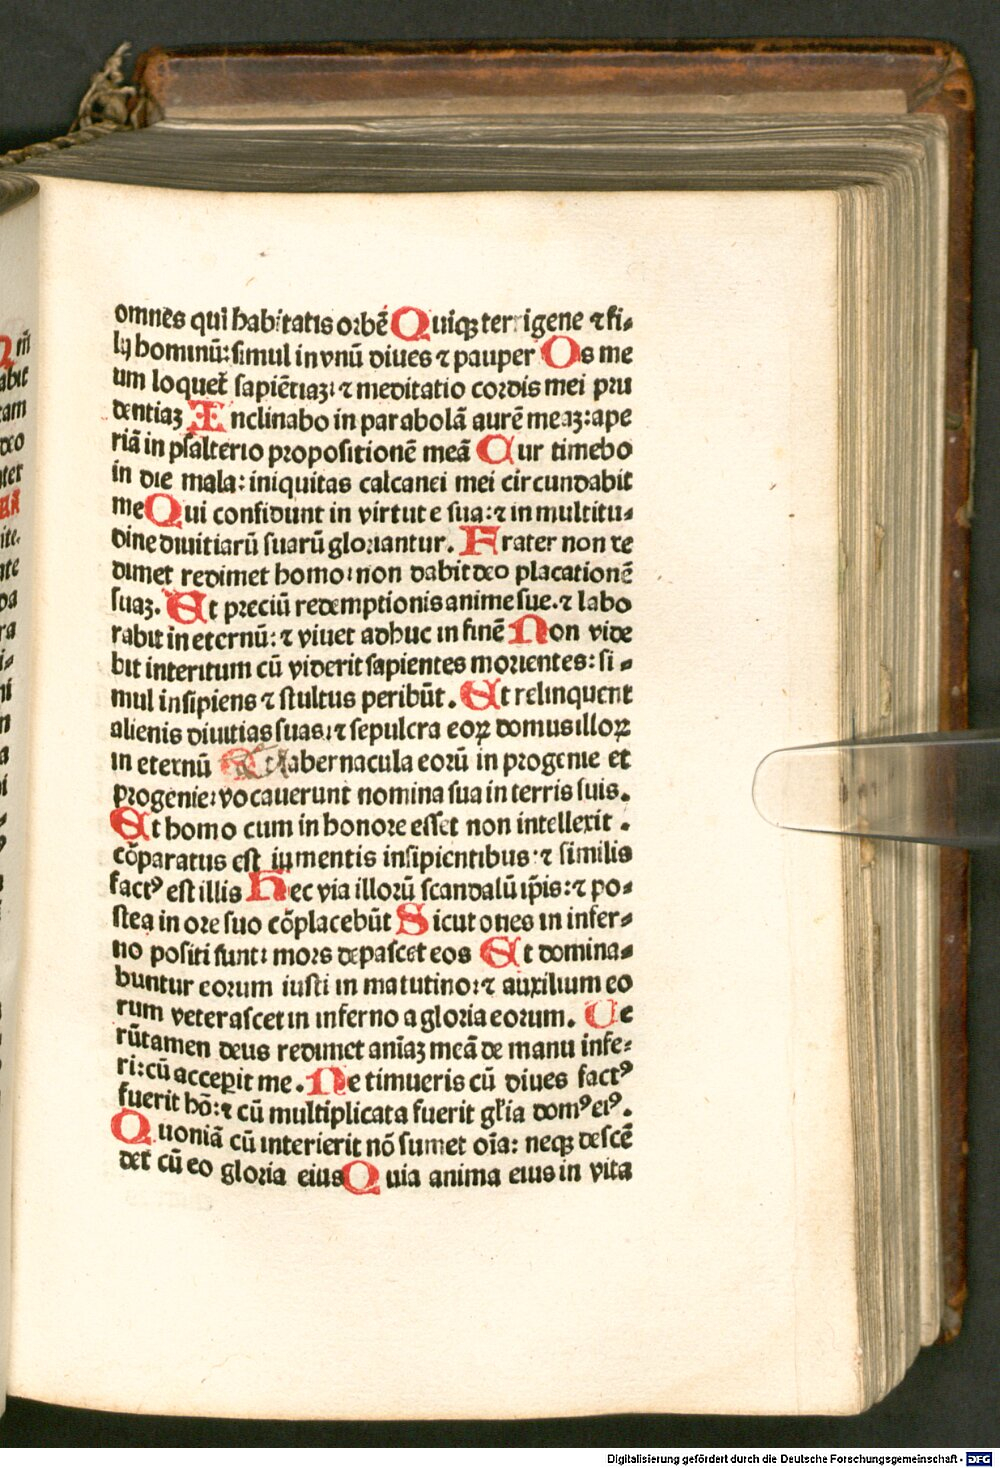 omnes qui habitatis orbē Quiqꝫ terrigene ⁊ fi⸗
lij hominū: simul in vnū diues ⁊ pauper Os me
um loquet̄ sapiētiaꝫ: ⁊ meditatio cordis mei pru
dentiaꝫ Inclinabo in parabolā aurē meaꝫ: ape
riā in psalterio propositionē meā Cur timebo
in die mala: iniquitas calcanei mei circundabit
me Qui confidunt in virtute sua: ⁊ in multitu⸗
dine diuitiarū suarū gloriantur. Frater non re
dimet redimet homo: non dabit deo placationē
suaꝫ. Et preciū redemptionis anime sue. ⁊ labo
rabit in eternū: ⁊ viuet adhuc in finē Non vide
bit interitum cū viderit sapientes morientes: si⸗
mul insipiens ⁊ stultus peribūt. Et relinquent
alienis diuitias suas: ⁊ sepulcra eoꝝ domus illoꝝ
in eternū Et tabernacula eorū in progenie et
progenie: vocauerunt nomina sua in terris suis.
Et homo cum in honore esset non intellexit.
cōparatus est iumentis insipientibus: ⁊ similis
factꝰ est illis Hec via illorū scandalū ip̄is: ⁊ po⸗
stea in ore suo cōplacebūt Sicut oues in infer⸗
no positi sunt: mors depascet eos Et domina⸗
buntur eorum iusti in matutino: ⁊ auxilium eo
rum veterascet in inferno a gloria eorum. Ue
rūtamen deus redimet aniaꝫ meā de manu infe⸗
ri: cū acceperit me. Ne timueris cū diues factꝰ
fuerit hō: ⁊ cū multiplicata fuerit gl̄ia domꝰ eiꝰ.
Quoniā cū interierit nō sumet oīa: neqꝫ descē
det̄ cū eo gloria eius Quia anima eius in vita
Digitalisierung gefördert durch die Deutsche Forschungsgemeinschaft - DFG